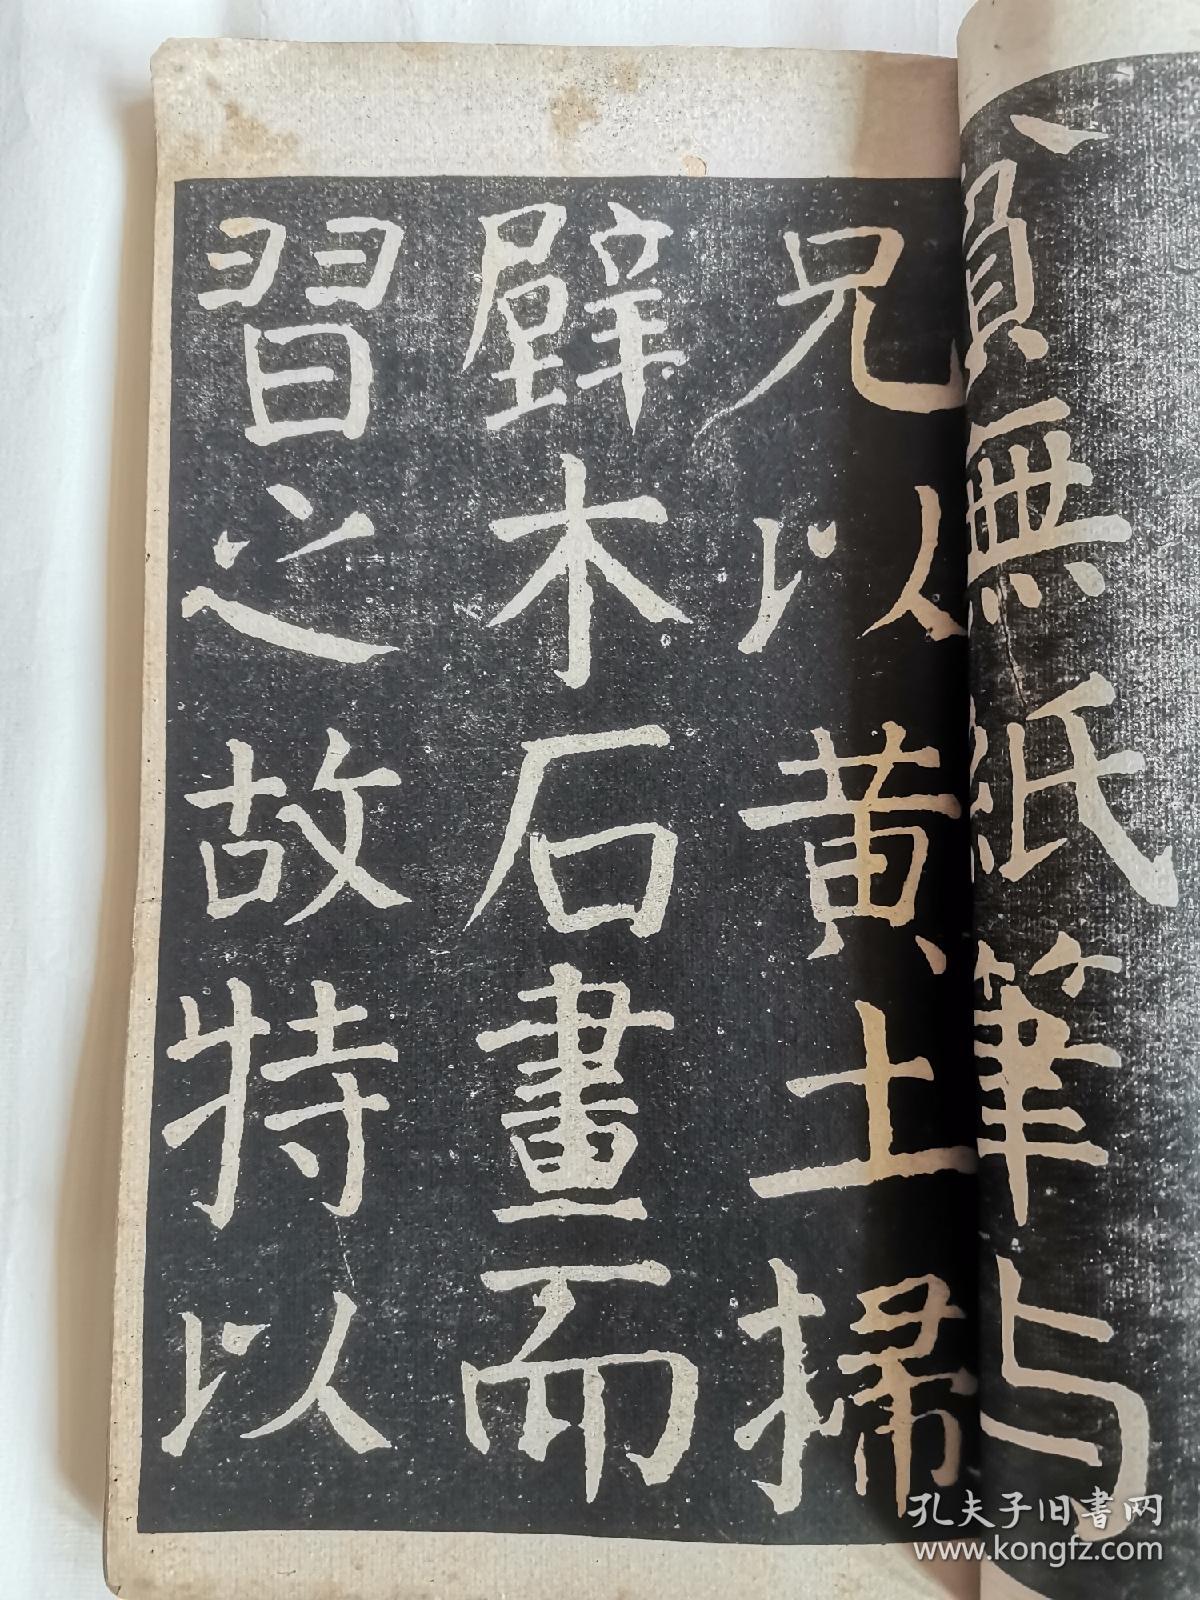 貧無紙筆与
兄以黄土掃
壁木石畫而
習之故特以
孔夫子旧書网
www.kongfz.com